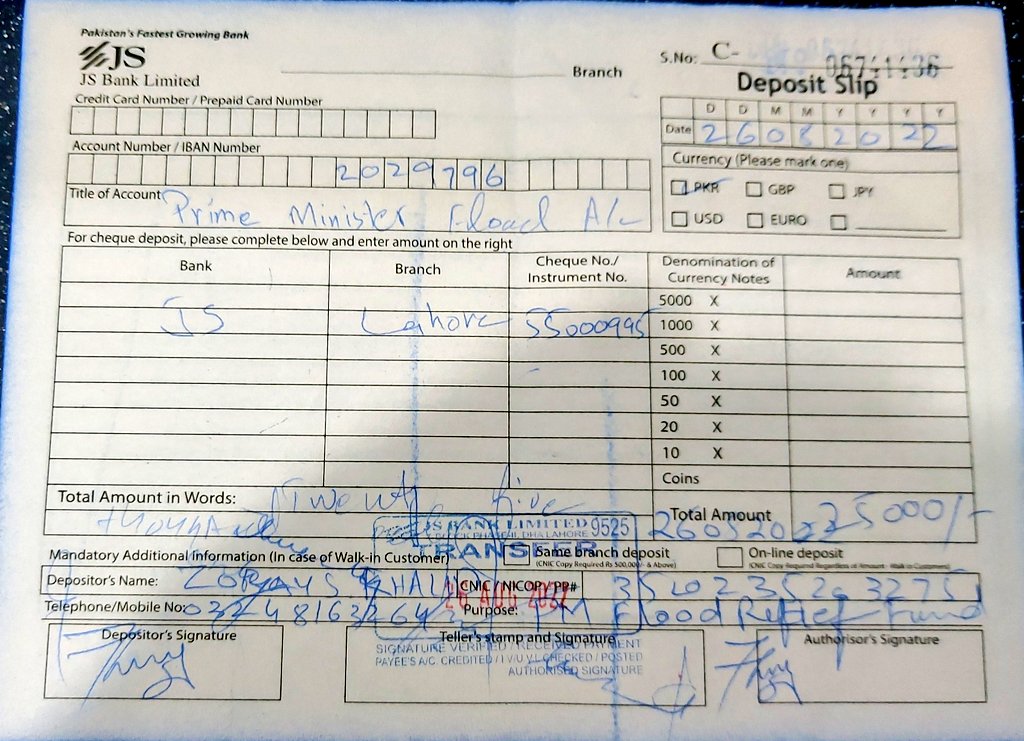 Pakistan's Fastest Growing Bank
JS
JS Bank Limited
Branch
S.No: C- 06741436
Deposit Slip
Credit Card Number / Prepaid Card Number
D D M M Y Y Y Y
Date 2 6 0 8 20 22
Account Number / IBAN Number
2029796
Currency (Please mark one)
PKR GBP JPY
USD EURO
Title of Account Prime Minister Flood A/c
For cheque deposit, please complete below and enter amount on the right
Bank Branch Cheque No./ Instrument No. Denomination of Currency Notes Amount
5000 X
JS Lahore 55000995 1000 X
500 X
100 X
50 X
20 X
10 X
Coins
Total Amount in Words: Twenty five
thousand
Total Amount 25000/-
JS BANK LIMITED 9525
DHA LAHORE
TRANSFER
26 AUG 2022
Mandatory Additional Information (In case of Walk-in Customer)
Same branch deposit
(CNIC Copy Required Rs 500,000/- & Above)
On-line deposit
(CNIC Copy Required Regardless of Amount - Walk in Customers)
Depositor's Name: KHALID CNIC / NICOP / PP#
Telephone/Mobile No: Purpose: PM Flood Relief Fund
Depositor's Signature
Teller's stamp and Signature
Authorisor's Signature
SIGNATURE VERIFIED / RECEIVED PAYMENT
PAYEE'S A/C. CREDITED / I V U V L CHECKED / POSTED
AUTHORISED SIGNATURE